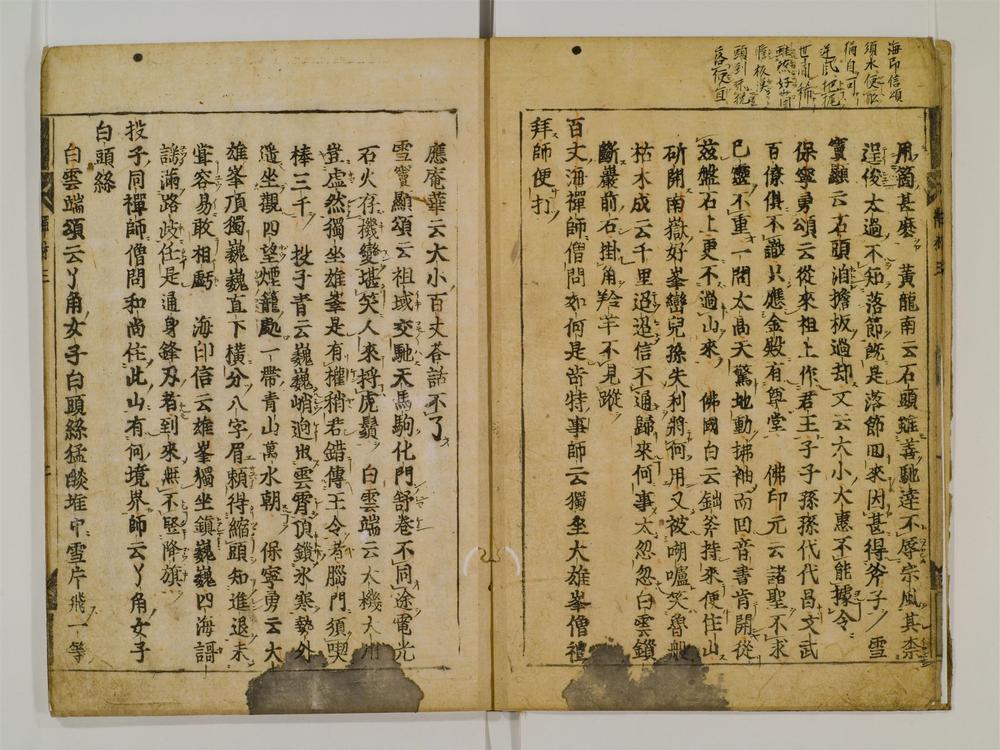 海印信頌
須水便
用箇甚麼 黃龍南云石頭雖善馳達不辱宗風其柰
逞俊太過不知落節旣是落節回來因甚得斧子 雪
竇顯云石頭洎擔板過却又云大小大惠不能據令
保寧勇頌云從來祖上作君王子子孫孫代代昌文武
百僚俱不識只應金殿有尊堂 佛印元云諸聖不求
已靈不重一問太高天驚地動拂袖而回音書肯開從
茲盤石上更不過山來 佛國白云鈯斧持來便住山
斫開南嶽好峯巒兒孫失利將何用又被呵噓笑魯般
枯木成云千里迢迢信不通歸來何事太忽忽白雲鎖
斷巖前石掛角羚羊不見蹤
百丈海禪師僧問如何是竒特事師云獨坐大雄峯僧禮
拜師便打
應庵華云大小百丈荅話不了
雪竇顯頌云祖域交馳天馬駒化門舒卷不同途電光
石火存機變堪笑人來捋虎鬚 白雲端云大機大用
豈虛然獨坐雄峯是有權稍若錯傳王令者腦門須喫
棒三千 投子青云巍巍峭逈出雲霄頂鎖氷寒勢外
遥坐觀四望煙籠處一帶青山萬水朝 保寧勇云大
雄峯頂獨巍巍直下橫分八字眉頼得縮頭知進退未
甞容易敢相虧 海印信云雄峯獨坐鎮巍巍四海謌
謠滿路歧任是通身鋒刃者到來無不竪降旗
投子同禪師僧問和尚住此山有何境界師云丫角女子
白頭絲
白雲端頌云丫角女子白頭絲猛燄堆中雪片飛一等